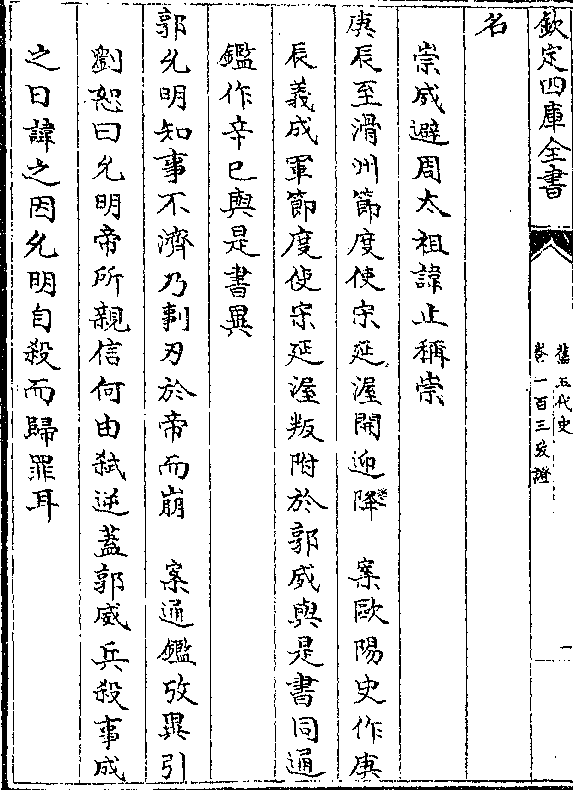 欽定四庫全書
舊五代史
卷一百三攷證
一
名
崇威避周太祖諱止稱崇
庚辰至滑州節度使宋延渥開迎降　案歐陽史作庚
辰義成軍節度使宋延渥叛附於郭威與是書同通
鑑作辛巳與是書異
郭允明知事不濟乃剚刃於帝而崩　案通鑑攷異引
劉恕曰允明帝所親信何由弑逆蓋郭威兵殺事成
之日諱之因允明自殺而歸罪耳